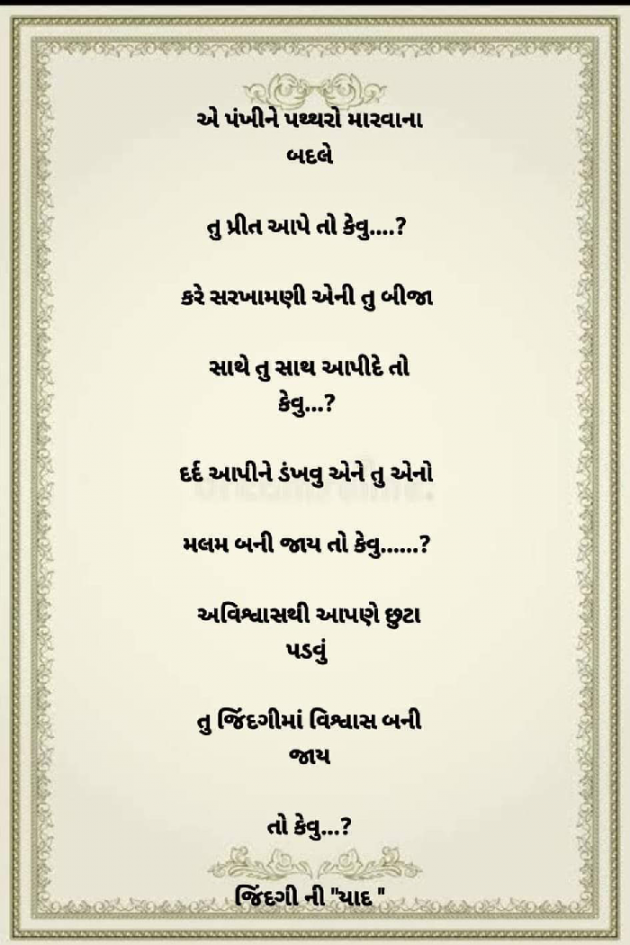 એ પંખીને પથ્થરો મારવાના
બદલે
તુ પ્રીત આપે તો કેવુ....?
કરે સરખામણી એની તુ બીજા
સાથે તુ સાથ આપીદે તો
કેવુ...?
દર્દ આપીને ડંખવુ એને તુ એનો
મલમ બની જાય તો કેવુ......?
અવિશ્વાસથી આપણે છુટા
પડવું
તુ જિંદગીમાં વિશ્વાસ બની
જાય
તો કેવુ...?
જિંદગી ની "યાદ "